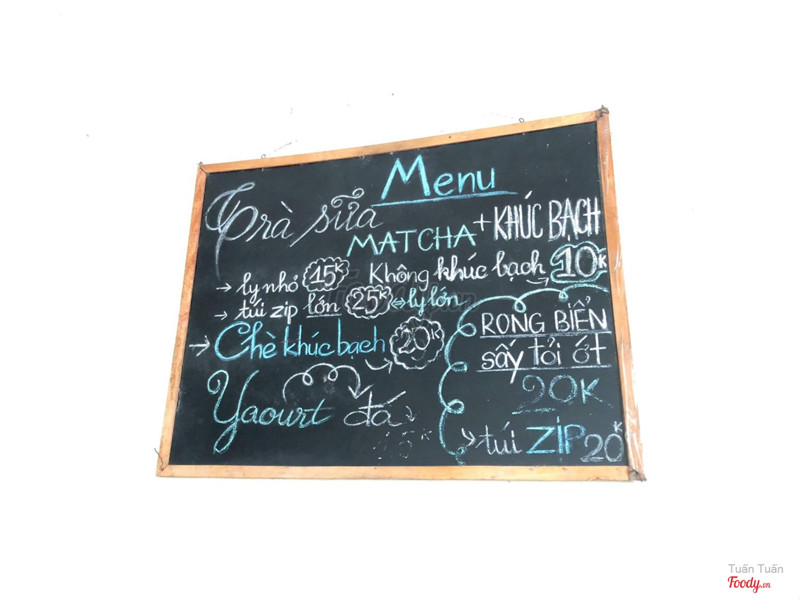 Menu
Trà sữa
MATCHA + KHÚC BẠCH
→ ly nhỏ 15K Không khúc bạch → 10K
→ túi zip lớn 25K ⇔ ly lớn
→ Chè khúc bạch → 20K
Yaourt đá → 15K
RONG BIỂN
sấy tỏi ớt
20K
→ túi ZIP 20K
Tuấn Tuấn
Foody.vn